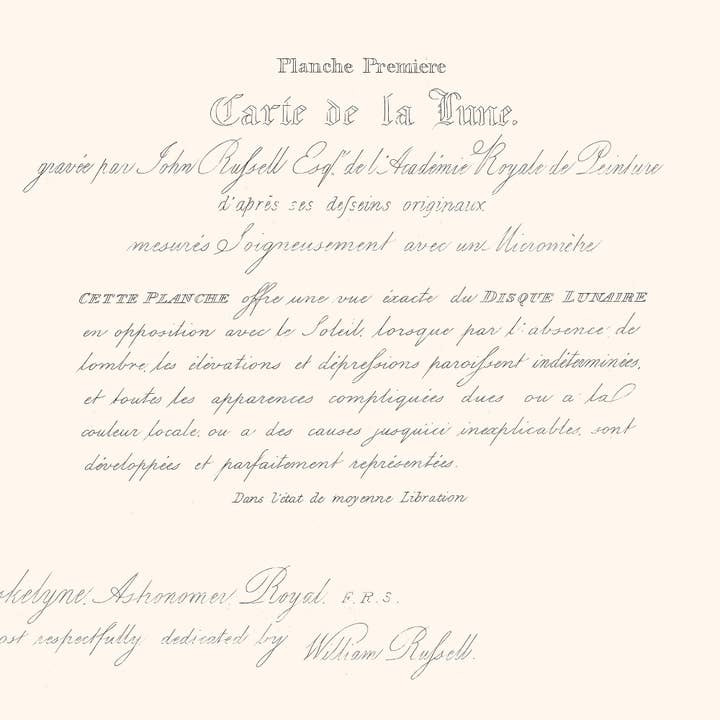 Planche Premiere
Carte de la Lune.
gravée par John Ruſsell Esqr. de l'Académie Royale de Peinture
d'après ses deſseins originaux
mesurés Soigneusement avec un Micromètre
CETTE PLANCHE offre une vue éxacte du DISQUE LUNAIRE
en opposition avec le Soleil, lorsque par l'absence de
lombre, les élévations et dépreſsions paroiſsent indéterminées,
et toutes les apparences compliquées dues ou a la
couleur locale, ou a des causes jusquïci inexplicables, sont
développées et parfaitement représentées.
Dans l'état de moyenne Libration
skelyne. Astronomer Royal. F.R.S.
ost respectfully dedicated by William Ruſsell.